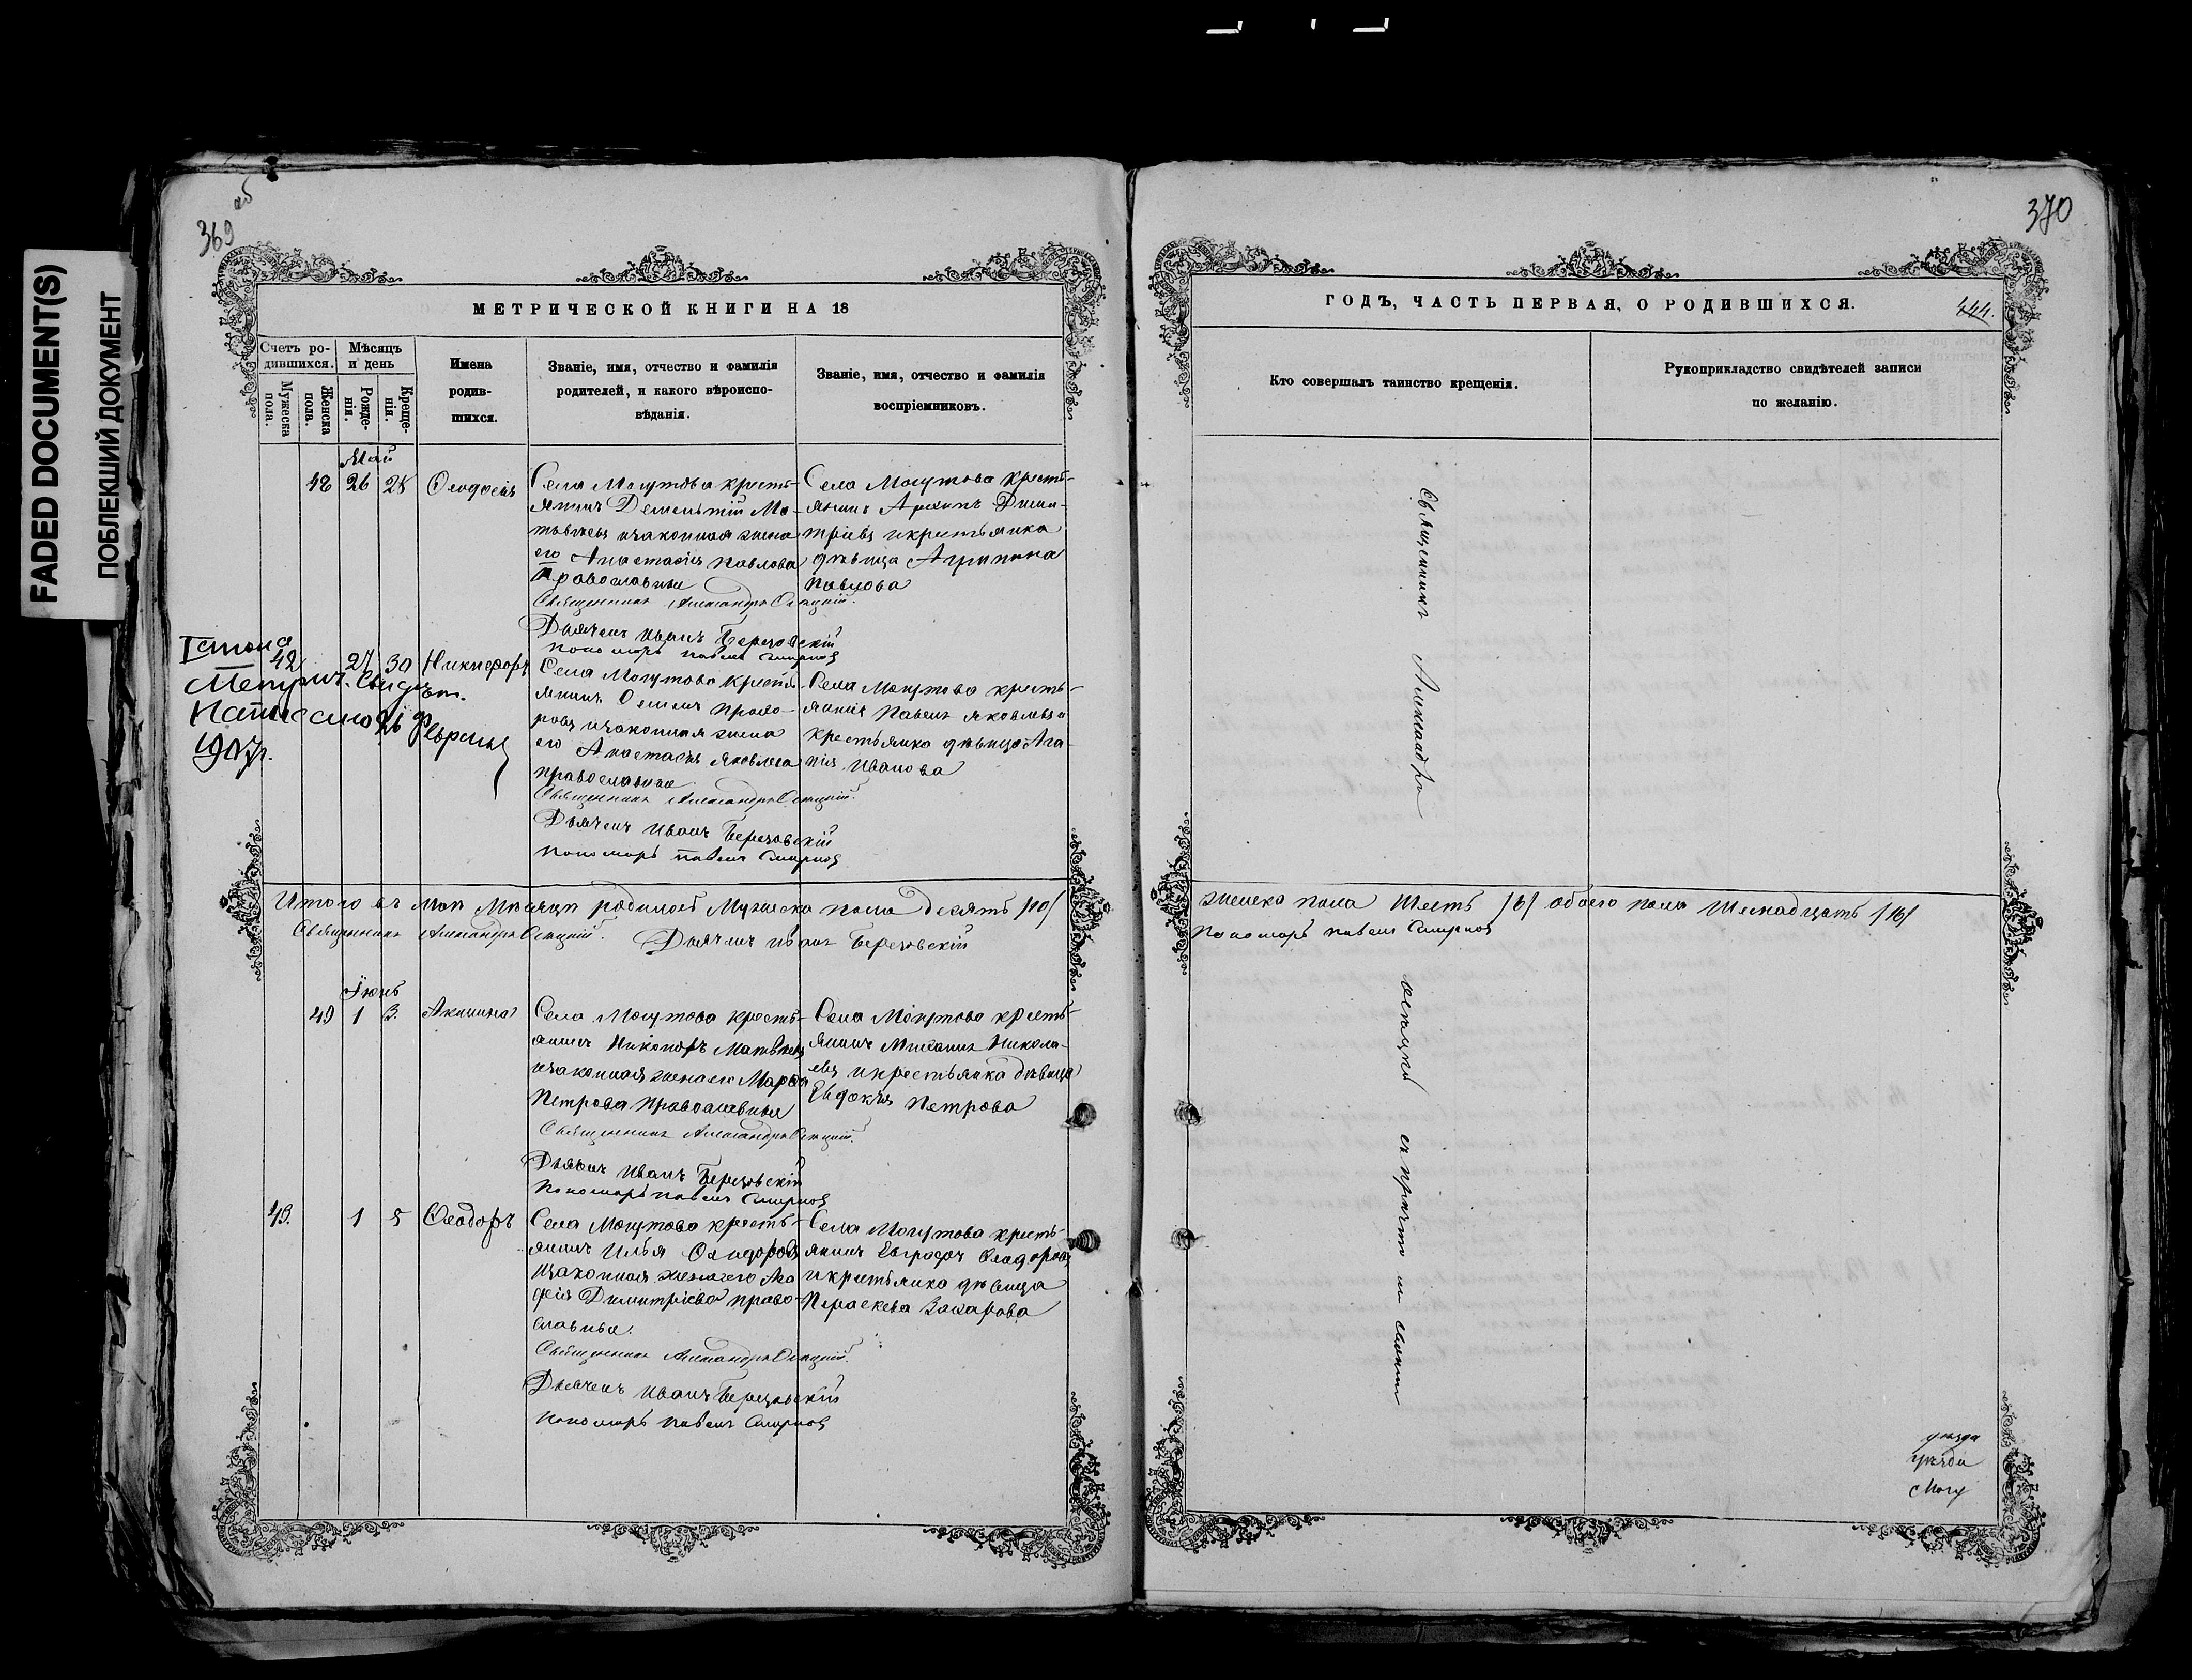 FADED DOCUMENT(S)
ПОБЛЕКШИЙ ДОКУМЕНТ
369 об
МЕТРИЧЕСКОЙ КНИГИ НА 18
Счетъ ро-
дившихся.
Мужеска
пола.
Женска
пола.
Мѣсяцъ
и день
Рожде-
нія.
Креще-
нія.
Имена
родив-
шихся.
Званіе, имя, отчество и фамилія
родителей, и какого вѣроиспо-
вѣданія.
Званіе, имя, отчество и фамилія
воспріемниковъ.
Май
48 26 28 Ѳеодосія
Села Могутова кресть-
янинъ Дементій Ма-
твѣевъ и законная жена
его Анастасія Павлова
Православные
Священникъ Александръ
Дьячекъ Иванъ Березовскій
Пономарь Павелъ Смирновъ
Села Могутова кресть-
янинъ Архипъ Дими-
тріевъ и крестьянка
дѣвица Агрипина
Павлова
42 27 30 Никифоръ
Метрич. Свидѣт.
Написано 26 февраля
1907 г.
Села Могутова кресть-
янинъ
и законная жена
его Анастасія Яковлева
православные
Священникъ Александръ
Дьячекъ Иванъ Березовскій
Пономарь Павелъ Смирновъ
Села Могутова кресть-
янинъ Павелъ Яковлевъ и
крестьянка дѣвица Ага-
пія Иванова
Итого въ Маѣ Мѣсяцѣ родилось Мужеска пола десять /10/
Священникъ Александръ Дьячекъ Иванъ Березовскій
Іюнь
49 1 3 Акилина
Села Могутова кресть-
янинъ Никоноръ Матвѣевъ
и законная жена его Марѳа
Петрова православные
Священникъ Александръ
Дьячекъ Иванъ Березовскій
Пономарь Павелъ Смирновъ
Села Могутова кресть-
янинъ Михаилъ Никола-
евъ и крестьянка дѣвица
Евдокія Петрова
43. 1 5 Ѳеодоръ
Села Могутова кресть-
янинъ Илья
и законная жена его Ага-
фія Димитріева право-
славные.
Священникъ Александръ
Дьячекъ Иванъ Березовскій
Пономарь Павелъ Смирновъ
Села Могутова кресть-
янинъ Евграфъ Ѳеодоровъ
и крестьянка дѣвица
Параскева Захарова
370
ГОДЪ, ЧАСТЬ ПЕРВАЯ, О РОДИВШИХСЯ.
444.
Кто совершалъ таинство крещенія.
Рукоприкладство свидѣтелей записи
по желанію.
Священникъ Александръ
женска пола Шесть /6/ обоего пола Шеснадцать /16/
Пономарь Павелъ Смирновъ
съ причтомъ
уѣзда
Могу